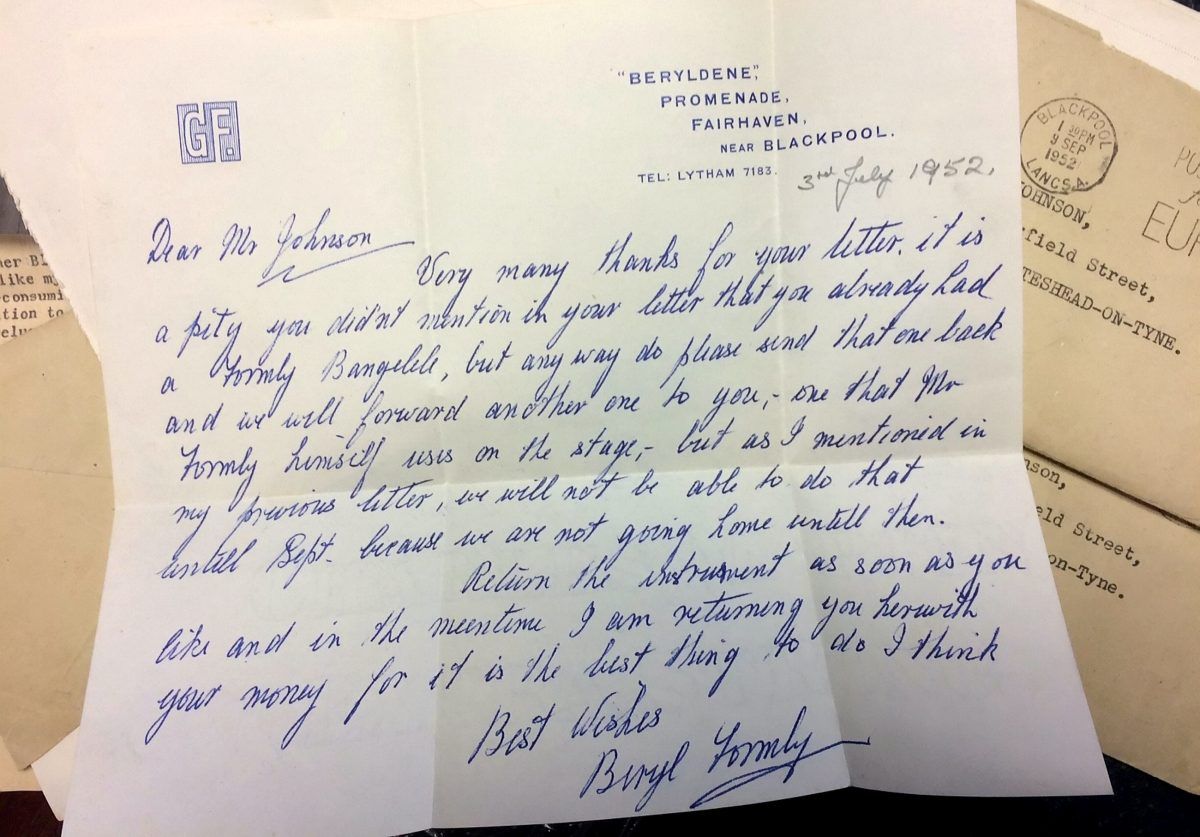 GF.
"BERYLDENE",
PROMENADE,
FAIRHAVEN,
NEAR BLACKPOOL.
TEL: LYTHAM 7183.
3rd July 1952.
Dear Mr Johnson
Very many thanks for your letter. it is
a pity you didn't mention in your letter that you already had
a Formby Bangelele, but any way do please send that one back
and we will forward another one to you,- one that Mr
Formby himself uses on the stage,- but as I mentioned in
my previous letter, we will not be able to do that
untill Sept. because we are not going home untill then.
Return the instrument as soon as you
like and in the meentime I am returning you herewith
your money for it is the best thing to do I think
Best Wishes
Beryl Formby
BLACKPOOL
1 30PM
9 SEP
1952
LANCS.
JOHNSON,
field Street,
TESHEAD-ON-TYNE.
nson,
eld Street,
on-Tyne.
her Bl
like my
consumi
tion to